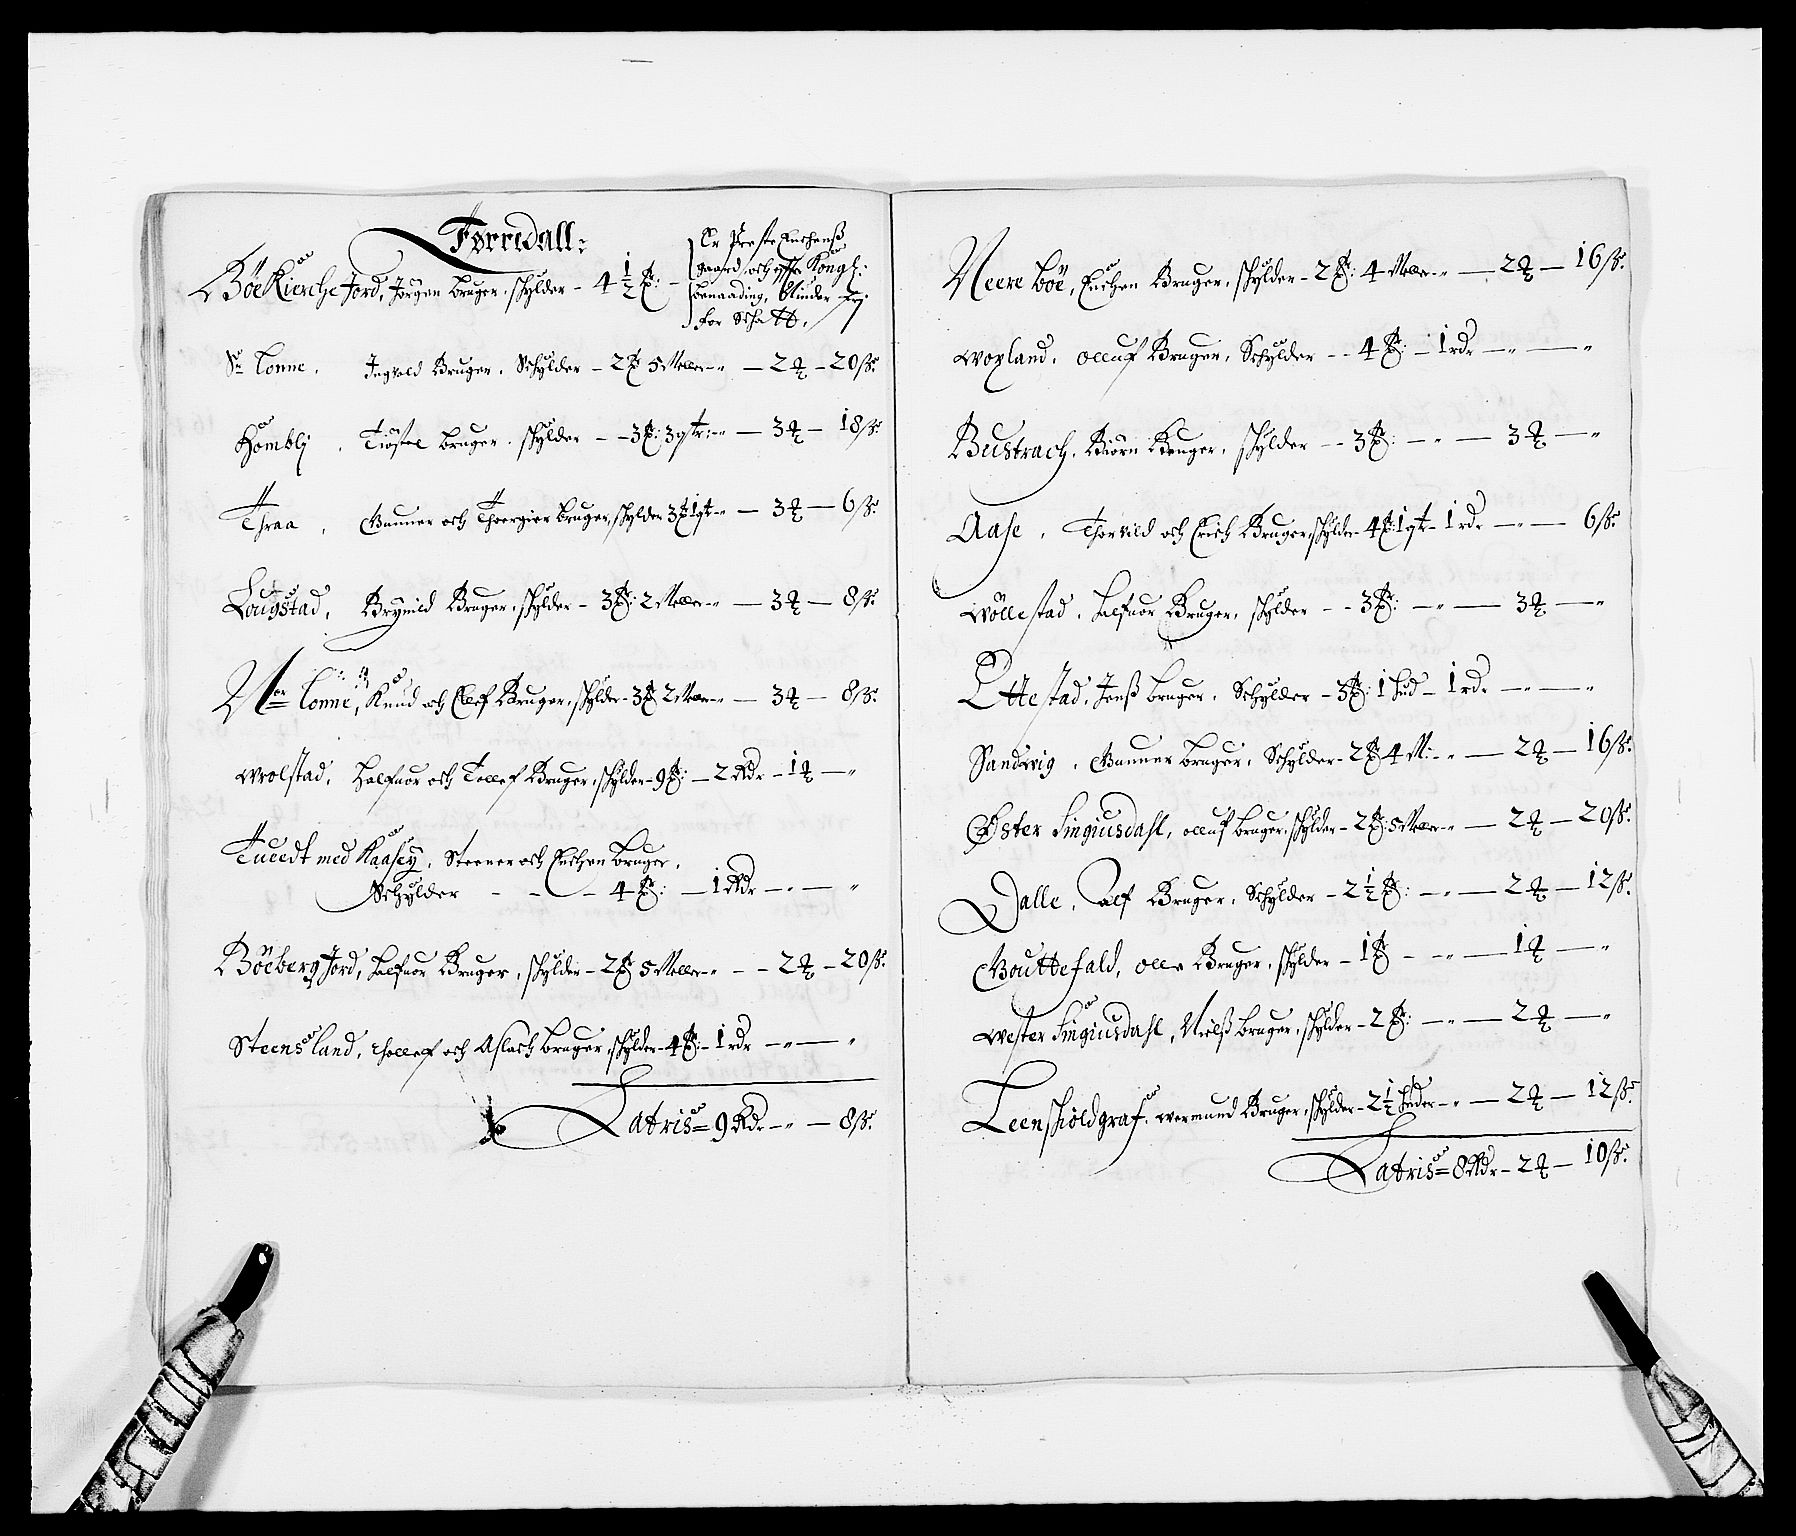 Førridall:
Böe Kiersche Jord, Jörgen bruger, schylder - 4 1/2 ℔: -
Er Preste Enchenß
gaard, och effter Kongl:
benaading, Minder frj
for Schatt,
Sr Lonne, Ingvald Bruger, Schylder - 2 ℔ 5 Meller - " - 2 ꝗ - 20 ß.
Homblj, Tiøstel bruger, schylder - - 3 ℔: 3 qtr: " - 3 ꝗ - 18 ß.
Thraa, Gunner och Thoergier bruger, schylder 3 ℔ 1 qt - " - 3 ꝗ - 6 ß.
Lougstad, Brynild Bruger, schylder - 3 ℔: 2 Meller - " - 3 ꝗ - 8 ß.
Nor Lonne, Knud och Ellef Bruger, schylder - 3 ℔ 2 Meller - " - 3 ꝗ - 8 ß.
Wrolstad, Halfuor och Tollef Bruger, schylder - 9 ℔: - 2 Rdr - 1 ꝗ - "
Tuedt med Kaasey, Steener och Enchen bruger,
Schylder - - - 4 ℔: - 1 Rdr - " - "
Böeberg Jord, Halfuor Bruger, schylder - 2 ℔ 5 Meller - " - - 2 ꝗ - 20 ß.
Steensland, Thollef och Aslach bruger, schylder - 4 ℔: - 1 rdr - " - "
Latris = 9 Rdr - " - 8 ß.
Neere böe, Enchen Bruger, schylder - 2 ℔: 4 Meller - " - 2 ꝗ - 16 ß.
Woxland, Olluf Bruger, Schylder - - 4 ℔: - 1 rdr - " - "
Bustrach, Biörn Bruger, schylder - - 3 ℔: - " - 3 ꝗ - "
Aase, Thorkild och Erich Bruger, schylder - 4 ℔: 1 qtr - 1 rdr - " - 6 ß.
Wöllestad, Halfuor Bruger, schylder - - 3 ℔: - " - 3 ꝗ - "
Ettestad, Jenß bruger, Schylder - 3 ℔: 1 hud - 1 rdr - " - "
Sandvig, Gunner bruger, Schylder - 2 ℔ 4 M: - " - 2 ꝗ - 16 ß.
Øster Singiusdahl, olluf bruger, schylder - 2 ℔: 5 Meller - " - 2 ꝗ - 20 ß.
Dalle, Alf Bruger, Schylder - 2 1/2 ℔: - " - 2 ꝗ - 12 ß.
Gouttefald, Olle Bruger, schylder - 1 ℔ - " - 1 ꝗ - "
Wester Singiusdahl, Nielß bruger, schylder - 2 ℔: - " - 2 ꝗ - "
Teenshioldgraf, Wermund Bruger, schylder - 2 1/2 huder - " - 2 ꝗ - 12 ß.
Latris = 8 Rdr - 2 ꝗ - 10 ß.